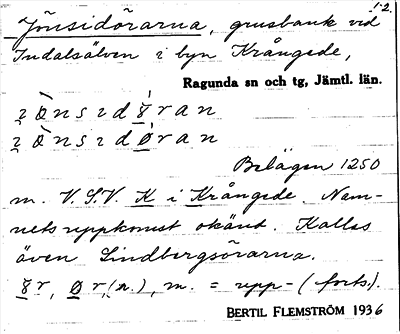 1-2.
Jönsidörarna, grusbank vid
Indalsälven i byn Krångede,
Ragunda sn och tg, Jämtl. län.
Belägen 1250
m. V.S.V. K i Krångede. Nam-
nets uppkomst okänt. Kallas
även Lindbergsörarna.
m. = upp- (forts.).
BERTIL FLEMSTRÖM 1936